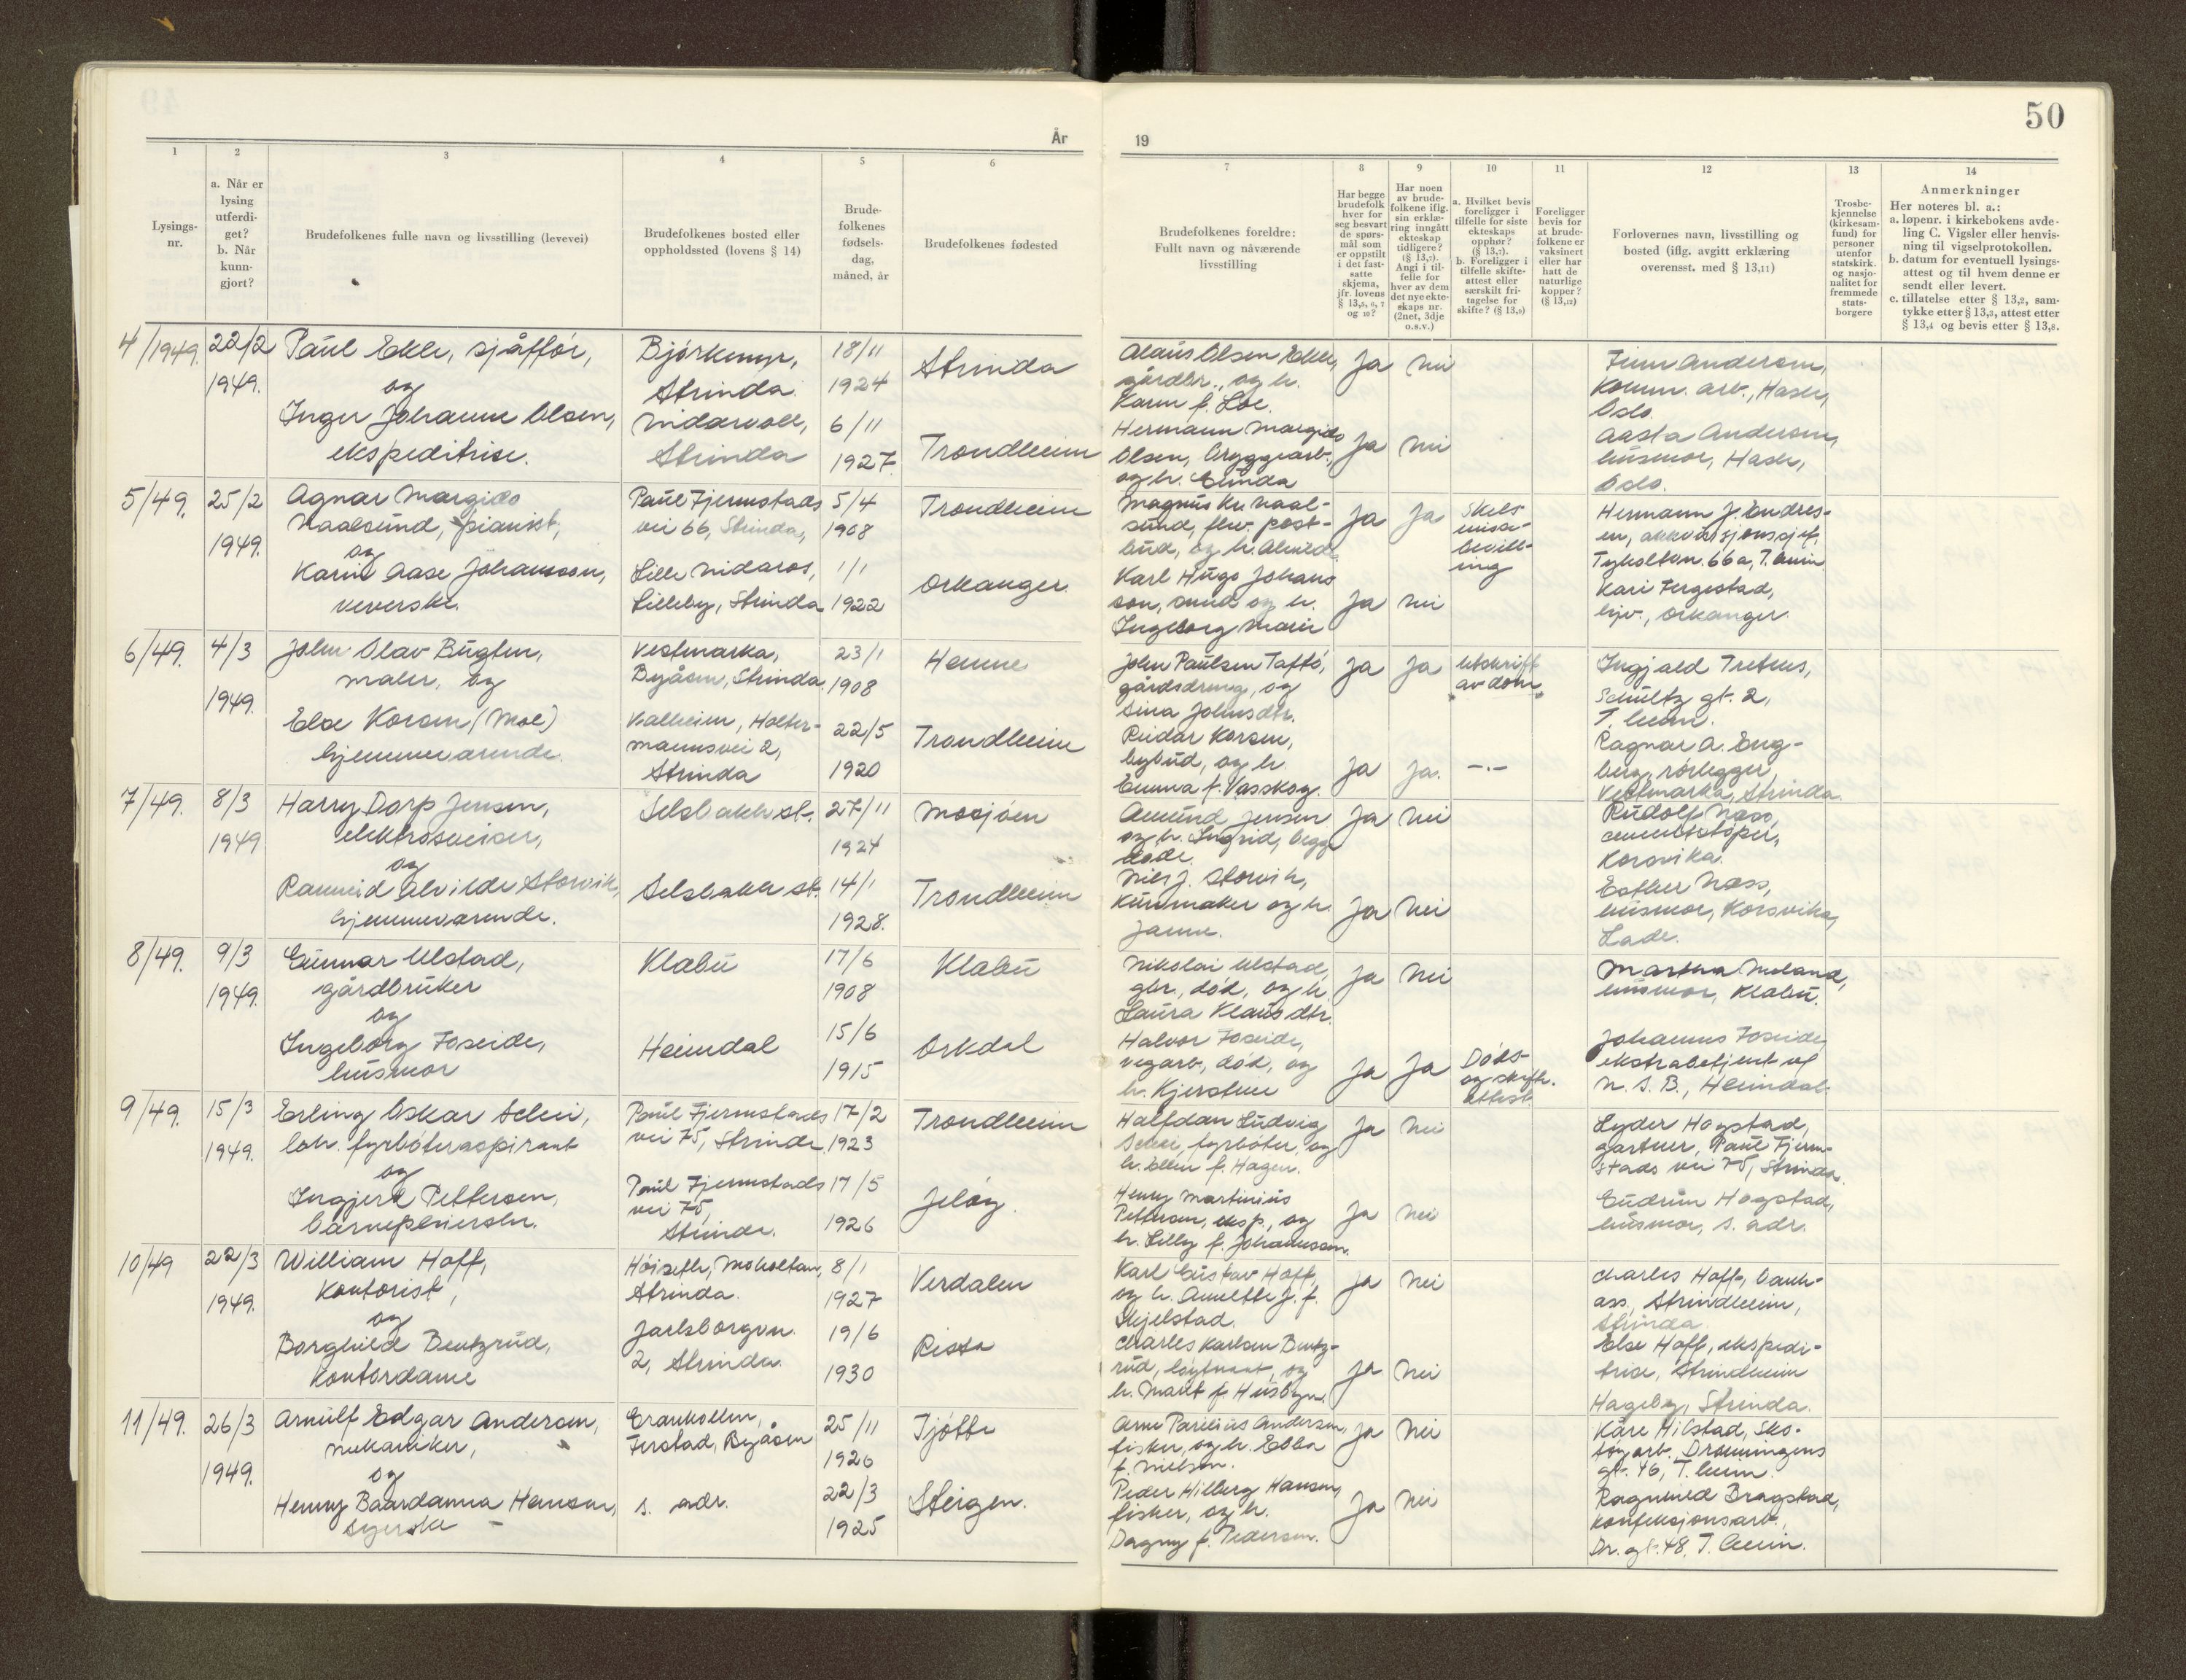 50
År
19
1
2
3
4
5
6
7
8
9
10
11
12
13
14
Lysings-
nr.
a. Når er
lysing
utferdi-
get?
b. Når
kunn-
gjort?
Brudefolkenes fulle navn og livsstilling (levevei)
Brudefolkenes bosted eller
oppholdssted (lovens § 14)
Brude-
folkenes
fødsels-
dag,
måned, år
Brudefolkenes fødested
Brudefolkenes foreldre:
Fullt navn og nåværende
livsstilling
Har begge
brudefolk
hver for
seg besvart
de spørs-
mål som
er oppstilt
i det fast-
satte
skjema,
jfr. lovens
§ 13,5, 6, 7
og 10?
Har noen
av brude-
folkene iflg.
sin erklæ-
ring inngått
ekteskap
tidligere?
(§ 13,7).
Angi i til-
felle for
hver av dem
det nye ekte-
skaps nr.
(2net, 3dje
o.s.v.)
a. Hvilket bevis
foreligger i
tilfelle for siste
ekteskaps
opphør?
(§ 13,7).
b. Foreligger i
tilfelle skifte-
attest eller
særskilt fri-
tagelse for
skifte? (§ 13,9)
Foreligger
bevis for
at brude-
folkene er
vaksinert
eller har
hatt de
naturlige
kopper?
(§ 13,12)
Forlovernes navn, livsstilling og
bosted (iflg. avgitt erklæring
overensst. med § 13,11)
Trosbe-
kjennelse
(kirkesam-
fund) for
personer
utenfor
statskirk.
og nasjo-
nalitet for
fremmede
stats-
borgere
Anmerkninger
Her noteres bl. a.:
a. løpenr. i kirkebokens avde-
ling C. Vigsler eller henvis-
ning til vigselprotokollen.
b. datum for eventuell lysings-
attest og til hvem denne er
sendt eller levert.
c. tillatelse etter § 13,2, sam-
tykke etter § 13,3, attest etter
§ 13,4 og bevis etter § 13,8.
4/1949.
22/2
1949.
Paul Ekle, sjåffør,
og
Inger Johanne Olsen,
ekspeditrise.
Bjørkmyr,
Strinda.
Nidarvoll,
Strinda
18/11
1924
6/11
1927.
Strinda
Trondheim
Olaus Olsen Ekle,
gårdbr., og h.
Karen f. Loe.
Hermann Margido
Olsen, bryggearb.,
og h. Gunda
Ja nei
Ja nei
Finn Andersen,
komm. arb., Hasle,
Oslo.
Aasta Andersen,
husmor, Hasle,
Oslo.
5/49.
25/2
1949.
Agnar Margido
Naalsund, pianist,
og
Karin Aase Johansson,
veverske.
Paul Fjermstads
vei 66, Strinda,
Lille Nidaros,
Lilleby, Strinda
5/4
1908
1/1
1922
Trondheim
Orkanger
Magnus Kr. Naal-
sund, fhv. post-
bud, og h. Alvilde
Karl Hugo Johans
son, smed og h.
Ingeborg Marie
Ja Ja
Ja nei
Skils-
misse-
bevill-
ing
Hermann J. Endres-
en, akkvisisjonssjef,
Tyholtvn. 66a, T.heim
Kari Fergestad,
hjv., Orkanger.
6/49.
4/3
1949.
John Olav Bugten,
maler, og
Else Korsen (Moe)
hjemmeværende.
Vestmarka,
Byåsen, Strinda.
Valheim, Holter-
mannsvei 2,
Strinda
23/1
1908
22/5
1920
Hemne
Trondheim
John Paulsen Taftø,
gårdsdreng, og
Sina Johnsdtr.
Reidar Korsen,
bybud, og h.
Emma f. Vasskog.
Ja Ja
Ja Ja.
Utskrift
av dom
-.-
Ingjald Tretnes,
Schultz gt. 2,
T.heim.
Ragnar A. Eng-
berg, rørlegger,
Vestmarka, Strinda.
7/49.
8/3
1949
Harry Dorp Jensen,
elektrosveiser,
og
Ranneid Alvilde Storvik,
hjemmeværende.
Selsbakk st.
Selsbakk st.
27/11
1924
14/1
1928.
Mosjøen
Trondheim
Amund Jensen
og h. Ingrid, begge
døde.
Nils J. Storvik,
kurvmaker og h.
Janne.
Ja Nei
Ja Nei
Rudolf Næss,
sementstøper,
Korsvika.
Esther Næss,
husmor, Korsvika,
Lade.
8/49.
9/3
1949.
Gunnar Ulstad,
gårdbruker
og
Ingeborg Foseide,
husmor
Klæbu
Heimdal
17/6
1908
15/6
1915
Klæbu
Orkdal
Nikolai Ulstad,
gbr., død, og h.
Laura Klausdtr.
Halvor Foseide,
vegarb., død, og
h. Kjerstine
Ja Nei
Ja Ja
Døds-
og skifte.
attest.
Martha Moland,
husmor, Klæbu.
Johannes Foseide,
ekstrabetjent v/
N. S. B., Heimdal.
9/49.
15/3
1949.
Erling Oskar Schei,
lok. fyrbøteraspirant
og
Ingjerd Pettersen,
barnepleierske.
Paul Fjermstads
vei 75, Strinda
Paul Fjermstads
vei 75,
Strinda.
17/2
1923
17/5
1926
Trondheim
Jeløy.
Halfdan Ludvig
Schei, fyrbøter, og
h. Ellen f. Hagen.
Henry Martinius
Pettersen, eksp., og
h. Lilly f. Johannessen.
Ja Nei
Ja Nei
Lyder Hogstad,
gartner, Paul Fjerm-
stads vei 75, Strinda.
Gudrun Hogstad,
husmor, s. adr.
10/49
22/3
1949.
William Hoff,
kontorist,
og
Borghild Bentzrud,
kontordame
Høiseth, Moholtan,
Strinda.
Jarlsborgvn.
2, Strinda.
8/1
1927
19/6
1930
Verdalen
Rissa
Karl Gustav Hoff,
og h. Anette J. f.
Skjelstad.
Charles Karlsen Bentz-
rud, løytnant, og
h. Marit f. Husbyn.
Ja Nei
Ja Nei
Charles Hoff, bank-
ass., Strindheim,
Strinda.
Else Hoff, ekspedi-
trise, Strindheim
Hageby, Strinda.
11/49.
26/3
1949.
Arnulf Edgar Andersen,
mekaniker,
og
Henny Baardanna Hansen,
syerske
Granhollen,
Ferstad, Byåsen
s. adr.
25/11
1926
22/3
1925
Tjøtta
Steigen.
Arne Parelius Andersen,
fisker, og h. Ebba
f. Nielsen.
Peder Hilberg Hansen,
fisker, og h.
Dagny f. Pedersen.
Ja Nei
Ja Nei
Kåre Hilstad, sko-
tøyarb. Dronningens
gt. 46, T.heim.
Ragnhild Bragstad,
konfeksjonsarb.,
Dr. gt. 48, T.heim.